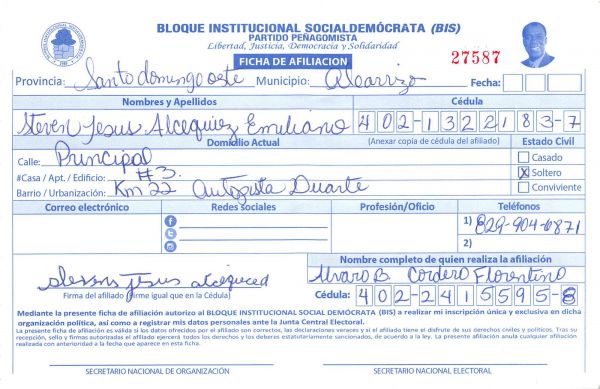 BLOQUE INSTITUCIONAL SOCIALDEMÓCRATA (BIS)
PARTIDO PEÑAGOMISTA
Libertad, Justicia, Democracia y Solidaridad
FICHA DE AFILIACION
27587
Provincia: Santo domingo oeste Municipio: Alcarrizo Fecha:
Nombres y Apellidos Cédula
Steven Jesus Alcequiez Emiliano 402-1322183-7
Domicilio Actual (Anexar copia de cédula del afiliado) Estado Civil
Calle: Principal Casado
#Casa / Apt. / Edificio: #3. X Soltero
Barrio / Urbanización: Km 22 Autopista Duarte Conviviente
Correo electrónico Redes sociales Profesión/Oficio Teléfonos
1) 829-904-6871
2)
Nombre completo de quien realiza la afiliación
Alvaro B. Cordero Florentino
stevens jesus
Firma del afiliado (firme igual que en la Cédula) Cédula: 402-2415595-8
Mediante la presente ficha de afiliación autorizo al BLOQUE INSTITUCIONAL SOCIAL DEMÓCRATA (BIS) a realizar mi inscripción única y exclusiva en dicha
organización política, así como a registrar mis datos personales ante la Junta Central Electoral.
La presente ficha de afiliación es válida si los datos ofrecidos por el afiliado son correctos, las declaraciones veraces y si el afiliado tiene el disfrute de sus derechos civiles y políticos. Tras su
recepción, sello y firmas autorizadas el afiliado ejercerá todos los derechos y los deberes estatutariamente sancionados, de acuerdo a la ley. La presente afiliación anula cualquier afiliación
realizada con anterioridad a la fecha que aparece en esta ficha.
SECRETARIO NACIONAL DE ORGANIZACIÓN SECRETARIO NACIONAL ELECTORAL